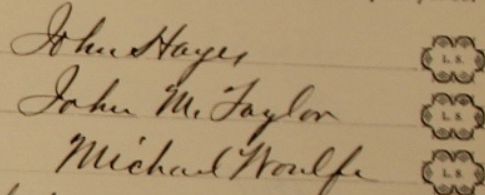 John Hayes L. S.
John M. Taylor L. S.
Michael Woulfe L. S.